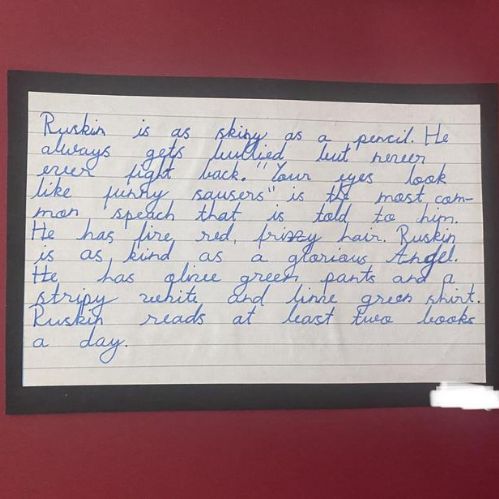 Ruskin is as skiny as a pencil. He
always gets bullied but never
ever fight back. "Your eyes look
like funny sausers" is the most com-
mon speach that is told to him.
He has fire red, frizzy hair. Ruskin
is as kind as a glorious Angel.
He has olive green pants and a
stripy white and lime green shirt.
Ruskin reads at least two books
a day.